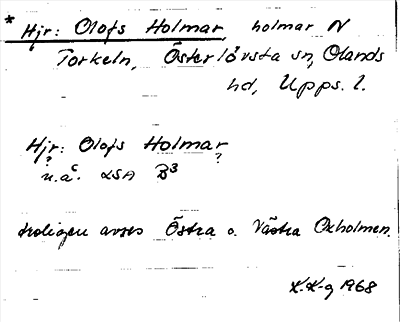 * Hjr: Olofs Holmar, holmar N
Torkeln, Österlövsta sn, Olands
hd, Upps. l.
Hjr: Olofs Holmar
? ?
u.å. LSA B3
troligen avses Östra o. Västra Oxholmen.
K.K-g 1968